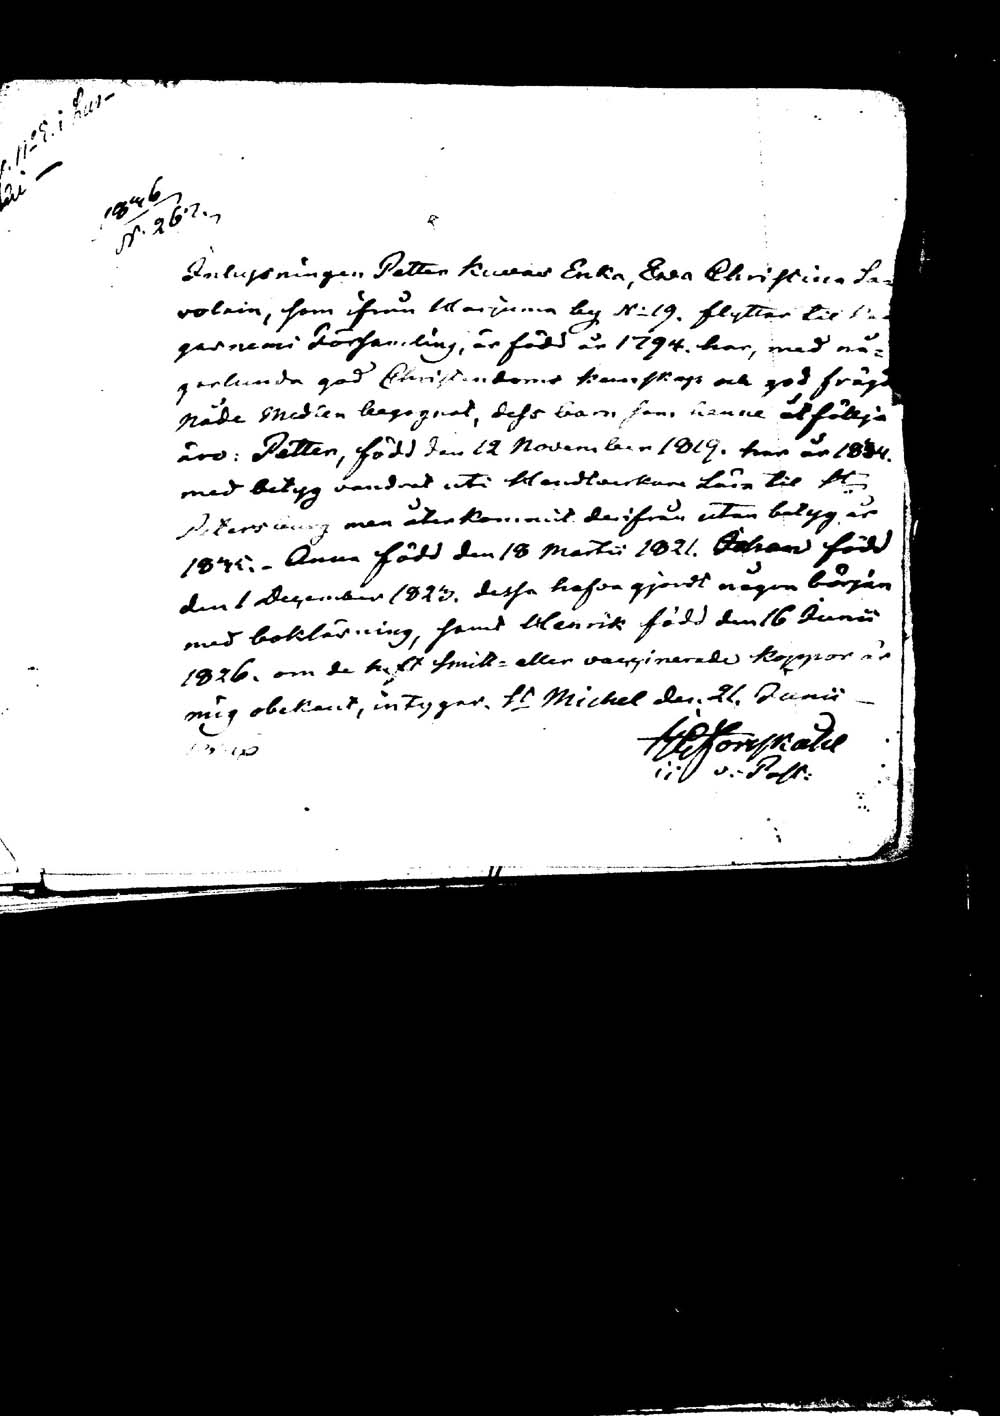 N. 11 E. i
1846
N. 26
Inhysningen Petter Enka, Ewa Christina Sa=
volain, som ifrån Marjuma by N: 19. flyttar til
förhamling, är född år 1794. har, med nå=
gorlunda god Christendoms kunskap och god frägd
Nåde Medlen begagnat, dess barn som henne åtfölja
äro: Petter, född den 12 November 1819. har år
med betyg vandrat uti Handtverkare Lära til St
Petersburg men återkommit derifrån utan betyg år
Anna född den 18 Martii 1821. Johan född
den 1 December 1823. dessa hafva gjordt någon början
med boklärning, samt Henrik född den 16 Junii
1826. om de haft smitt= eller vaccinerade koppor är
mig obekant, intygar. St Michel den 21. Junii
v. Past: